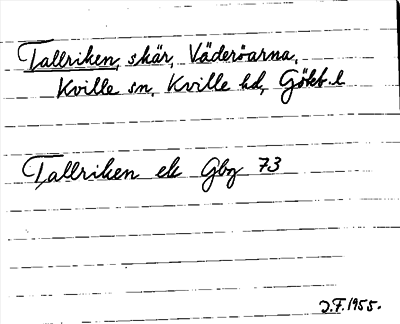 Tallriken, skär, Väderöarna,
Kville sn, Kville hd, Götebl
Tallriken ek Gbg 73
J.F. 1955.